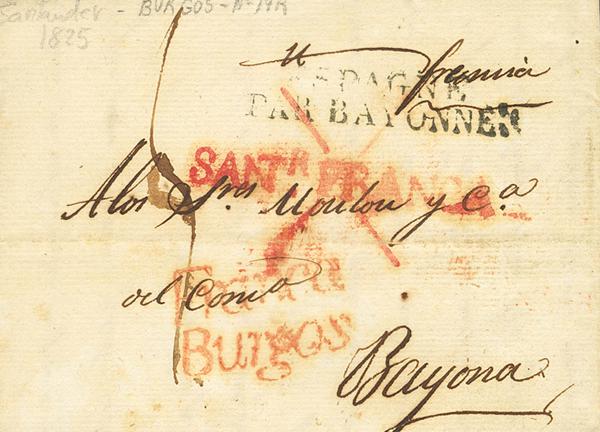 Santander - BURGOS-N-14R
1825
francia
ESPAGNE
PAR BAYONNE
SANTR FRANCA
A los Sres Moulon y Ca
del Comio
Burgos
Bayona